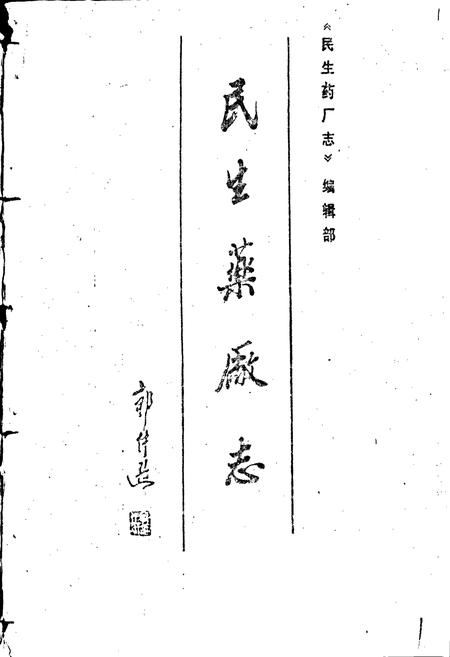 《民生药厂志》编辑部
民生藥廠志
郭仲选